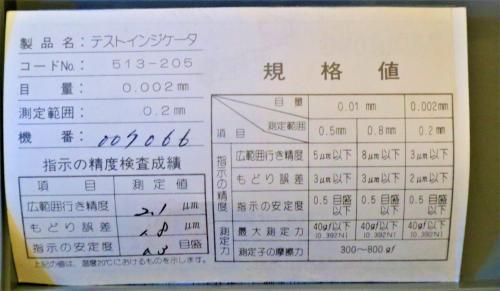 製品名：テストインジケータ
コードNo. 513-205
目量： 0.002mm
測定範囲： 0.2mm
機番：
指示の精度検査成績
項目 測定値
広範囲行き精度 2.1 μm
もどり誤差 1.8 μm
指示の安定度 0.3 目盛
上記の値は、温度20℃におけるものを示します。
規格値
目量 0.01mm 0.002mm
項目 測定範囲 0.5mm 0.8mm 0.2mm
指示の精度
広範囲行き精度 5μm以下 8μm以下 3μm以下
もどり誤差 3μm以下 3μm以下 2μm以下
指示の安定度 0.5目盛以下 0.5目盛以下 0.5目盛以下
測定力
最大測定力 40gf以下 (0.392N) 40gf以下 (0.392N) 40gf以下 (0.392N)
測定子の摩擦力 300～800gf